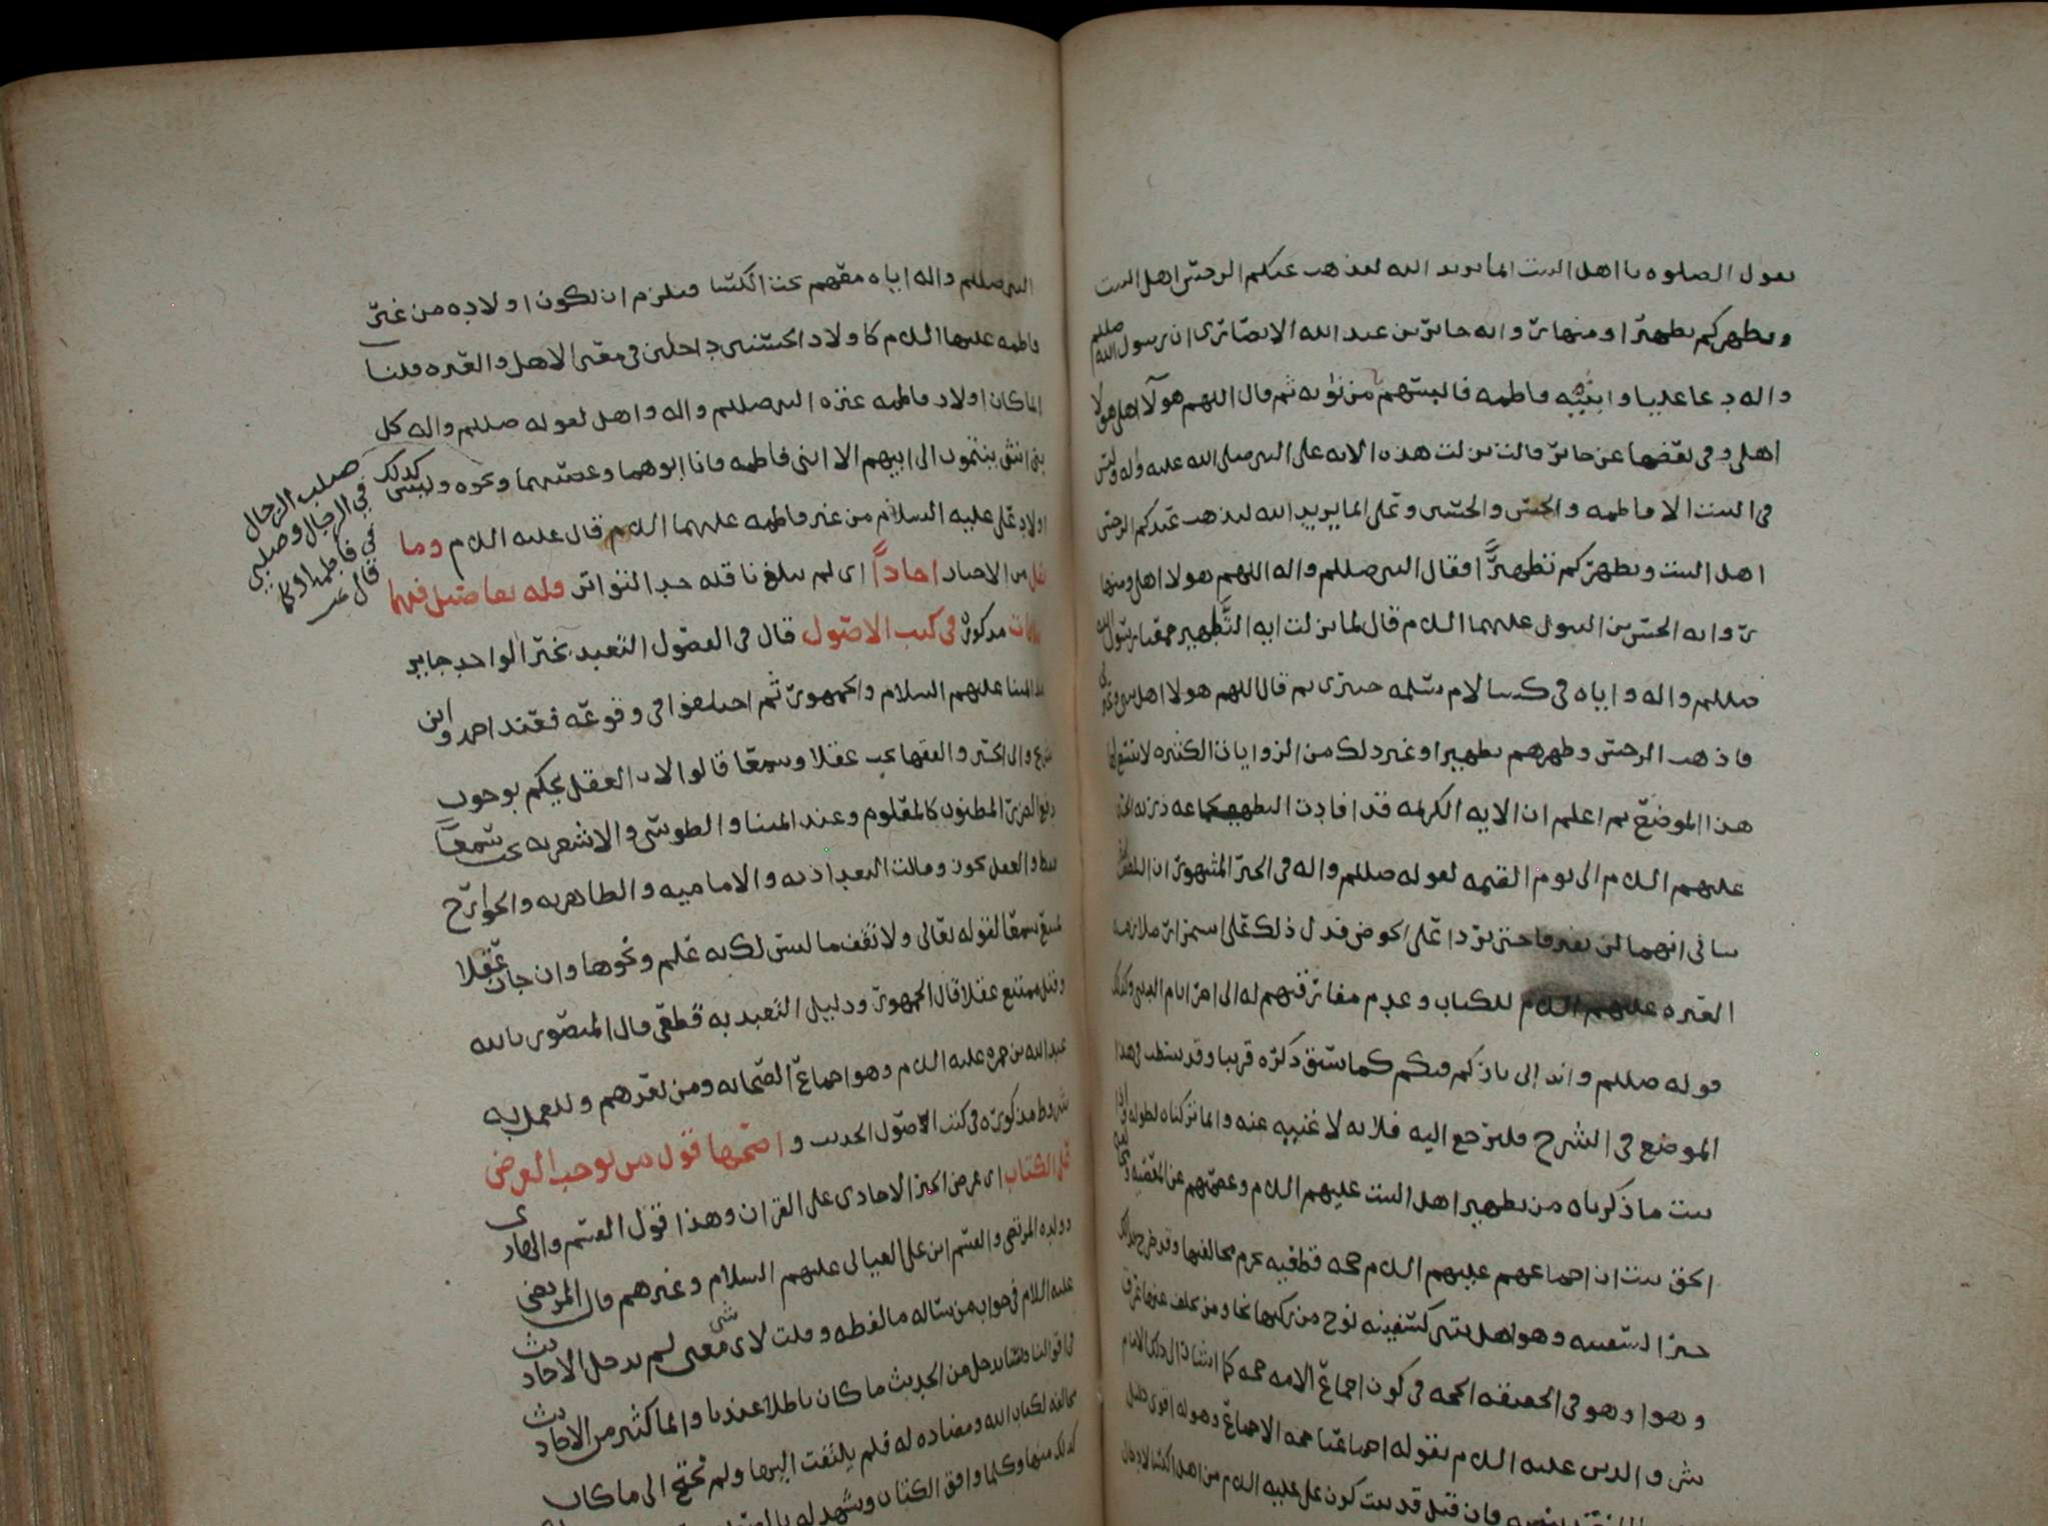 يقول الصلوه يا اهل البيت انما يريد الله ليذهب عنكم الرجس اهل البيت
ويطهركم تطهيرا ومنها رواية جابر بن عبد الله الانصاري ان رسول الله صللم
واله دعا عليا وابنيه وفاطمه فالبسهم من ثوبه ثم قال اللهم هولآ اهلي هولا
اهلي وفي بعضها عن جابر قالت نزلت هذه الايه على النبي صلى الله عليه واله وليس
في البيت الا فاطمه والحسن والحسين وعلي انما يريد الله ليذهب عنكم الرجس
اهل البيت ويطهركم تطهيرًا فقال النبي صللم واله اللهم هولا اهلي ومنها
رواية الحسن بن البتول عليهما السلام قال لما نزلت ايه التطهير جمعنا رسول الله
صللم واله واياه في كسا لام سلمه خيبري ثم قال اللهم هولا اهل بيتي وعترتي
فاذهب الرجس وطهرهم تطهيرا وغير ذلك من الروايات الكثيره لا يتسع لها
هذا الموضع ثم اعلم ان الايه الكريمه قد افادت التطهير لجماعه ذريه الخمسه
عليهم السلام الى يوم القيمه لقوله صللم واله في الخبر المشهور ان اللطيف الخبير
نباني انهما لن يفترقا حتى يردا علي الحوض فدل ذلك على استمرار ملازمه
العتره عليهم السلام للكتاب وعدم مفارقتهم له الى اخر ايام الدنيا وكذلك
قوله صللم واله اني تارك فيكم كما سبق ذكره قريبا وقد بسط في هذا
الموضع في الشرح فليرجع اليه فلانه لا غنيه عنه وانما تركناه لطوله واذا
ثبت ما ذكرناه من تطهير اهل البيت عليهم السلام وعصمتهم عن المعصيه ومخالفه
الحق ثبت ان اجماعهم عليهم السلام حجه قطعيه يحرم مخالفتها وقد صرح بذلك
خبر السفينه وهو اهل بيتي كسفينه نوح من ركبها نجا ومن تخلف عنها غرق
وهوا وهو في الحقيقه الحجه في كون اجماع الامه حجه كما اشار الى ذلك الامام
شرف الدين عليه السلام بقوله اجماعنا حجه الاجماع وهو له اقوى دليل
فان قيل قد ثبت كون علي عليه السلام من اهل الكسا لادخال
النبي صللم واله اياه معهم تحت الكسا فيلزم ان يكون اولاده من غير
فاطمه عليها السلام كاولاد الحسنين داخلين في معنى الاهل والعتره قلنا
انما كان اولاد فاطمه عتره النبي صللم واله واهل لقوله صللم واله كل
بني انثى ينتمون الى ابيهم الا ابني فاطمه فانا ابوهما وعصبتهما ونحوه وليس كذلك
اولاد علي عليه السلام من غير فاطمه عليهما السلام قال عليه السلام وما
نقل من الاخبار احاداً اي لم يبلغ ناقله حد التواتر فله تفاصيل فيها
خلافات مذكوره في كتب الاصول قال في الفصول التعبد بخبر الواحد جايز
عند ايمتنا عليهم السلام والجمهور ثم اختلفوا في وقوعه فعند احمد وابن
سريج وابي الحسين والقفال يجب عقلا وسمعا قالوا لان العقل يحكم بوجوب
دفع الضرر المظنون كالمعلوم وعند ايمتنا والطوسي والاشعريه يجب سمعا
فقط والعقل يجوزه وقالت البغداذيه والاماميه والظاهريه والخوارج
يمتنع سمعا لقوله تعالى ولا تقف ما ليس لك به علم ونحوها وان جاز عقلا
وقيل يمتنع عقلا قال الجمهور ودليل التعبد به قطعي قال المنصور بالله
عبد الله بن حمزه عليه السلام وهو اجماع الصحابه ومن بعدهم وللعمل به
شروط مذكوره في كتب الاصول الحديث واصحها قول من يوجب العرض
على الكتاب اي عرض الخبر الاحادي على القران وهذا قول القسم والهادي
وولده المرتضى والقسم ابن علي العياني عليهم السلام وغيرهم قال المرتضى
عليه السلام في جواب من ساله ما لفظه وقلت لاي معنى لم ندخل الاحاديث
في اقوالنا ولسنا ندخل من الحديث ما كان باطلا عندنا وانما كثير من الاحاديث
مخالفه لكتاب الله ومضاده له فلم يلتفت اليها ولم نحتج الى ما كان
كذلك منها وكلما وافق الكتاب وشهد له
صلب الرجال
في الرجال وصلبي
في فاطمه او كما
قال عم